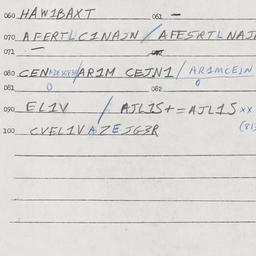 060 HAW1BAXT 061 —
070 AFERTLC1NAJN / AFE5RTLNAJ
071 —
080 CEN /AR1M CEJN1 / AR1MCEJN
081 0 082 0
090 EL1V / AJL1S+=AJL1S xx
100 CVEL1VAZEJG3R (813